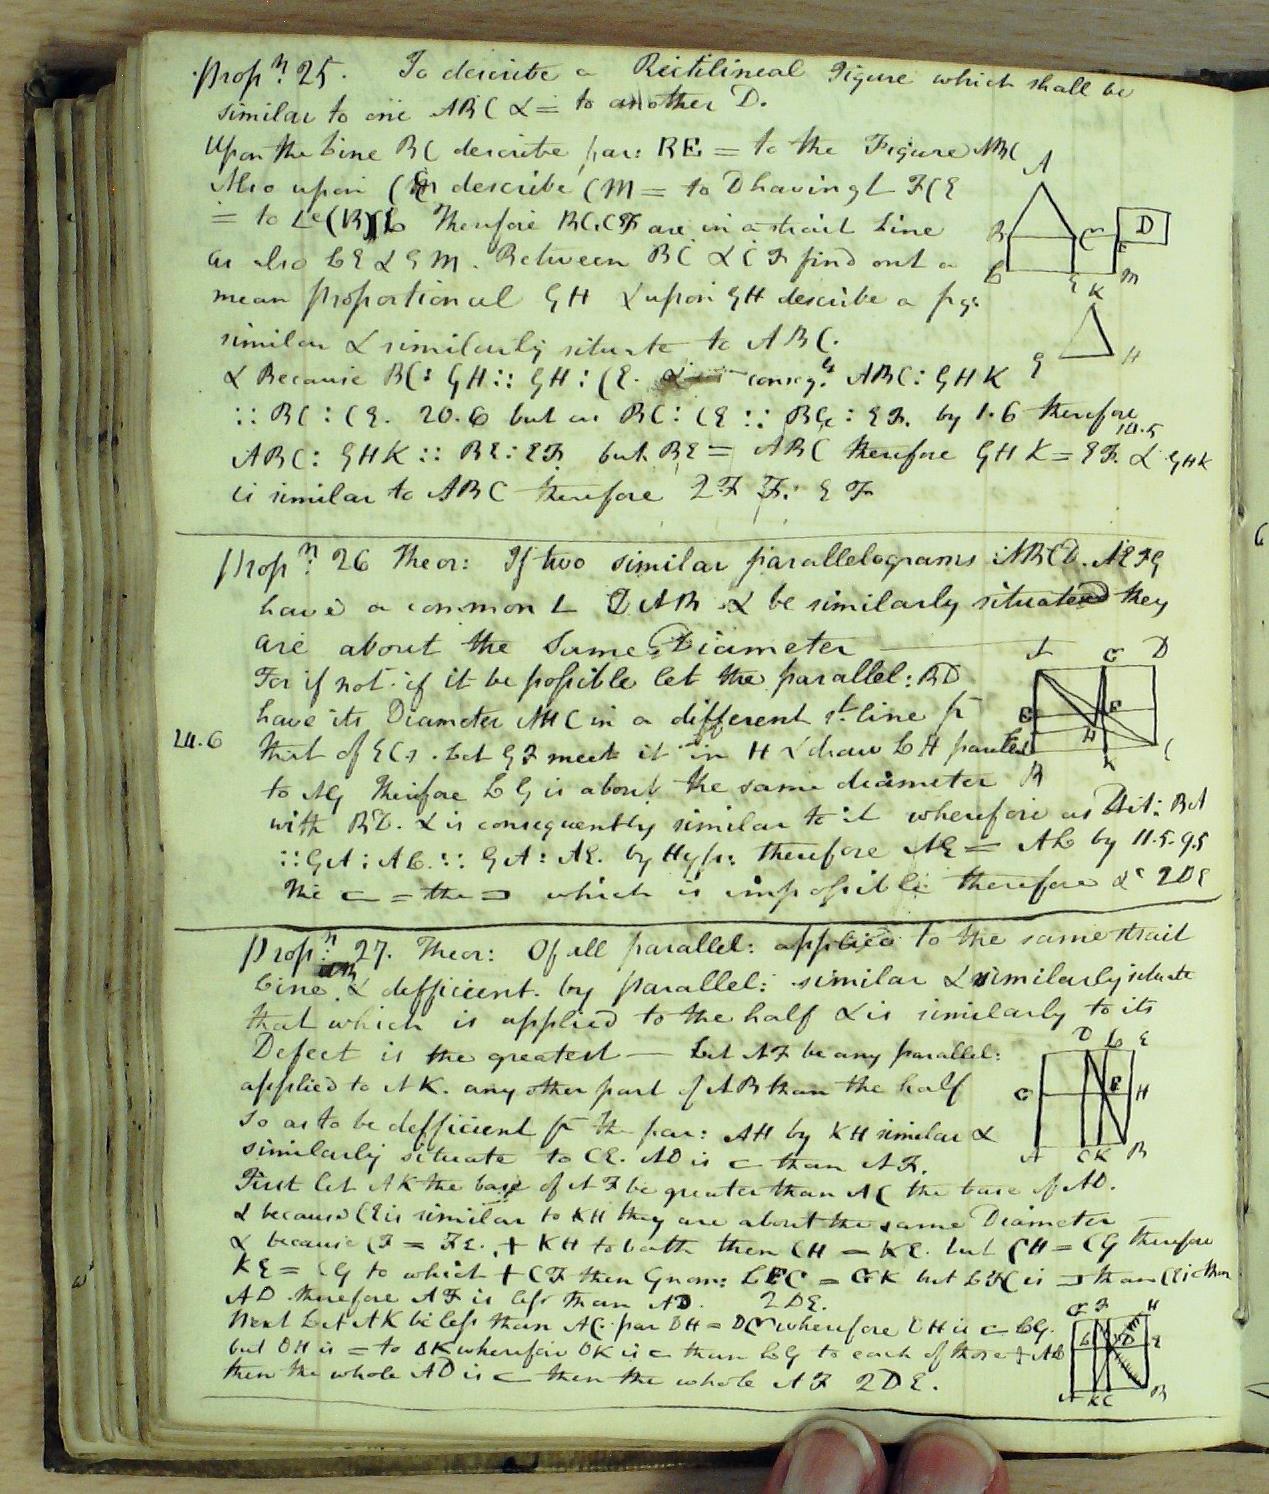 Propn. 25. To describe a Rectilineal Figure which shall be
similar to one ABC & = to another D.
Upon the Line BC describe par: BE = to the Figure ABC
Also upon describe CM = to D having L FCE
= to L Therefore BC CF are in a strait Line
as also LE & EM. Between BC & CF find out a
mean proportional GH & upon GH describe a fig:
similar & similarly situate to ABC.
& Because BC: GH:: GH: CE. conseq: ABC: GHK
:: BC: CE. 20.6 but as BC: CE :: BE: EF. by 1.6 therefore
ABC: GHK :: BE: EF but BE = ABC therefore GHK = EF. 14.5 & GHK
is similar to ABC therefore 2F F: EF
Propn. 26 Theor: If two similar parallelograms ABCD. AEFG
have a common L & be similarly situated they
are about the same Diameter
For if not if it be possible let the parallel: BD
have its Diameter AHC in a different st. line fr
24.6 that of EG. Let GF meet it in H & draw LH parallel
to AG Therefore LG is about the same diameter
with BD. & is consequently similar to it wherefore as DA: BA
:: GA: AL :: GA: AE. by Hyp: therefore AE = AL by 11.5. 9.5
The ⊏ = the ⊐ which is impossible therefore &c 2DE
Propn. 27. Theor: Of all parallel: applied to the same strait
Line & defficient by parallel: similar & similarly situate
that which is applied to the half & is similarly to its
Defect is the greatest — Let AF be any parallel:
applied to AK. any other part of AB than the half
so as to be defficient fr the par: AH by KH similar &
similarly situate to CE. AD is ⊏ than AF.
First let AK the base of AF be greater than AC the base of AD.
& because CE is similar to KH they are about the same Diameter
& because CF = FE. + KH to both then CH = KE. but CH = CG therefore
KE = CG to which + CF then Gnom: LFC = GK but is ⊐ than CE is then
AD therefore AF is less than AD. 2DE.
Next Let AK be less than AC. par DH = DG wherefore DH is ⊏ LG.
but DH is = to DK wherefore DK is ⊏ than LG to each of those + AL
then the whole AD is ⊏ then the whole AF 2DE.